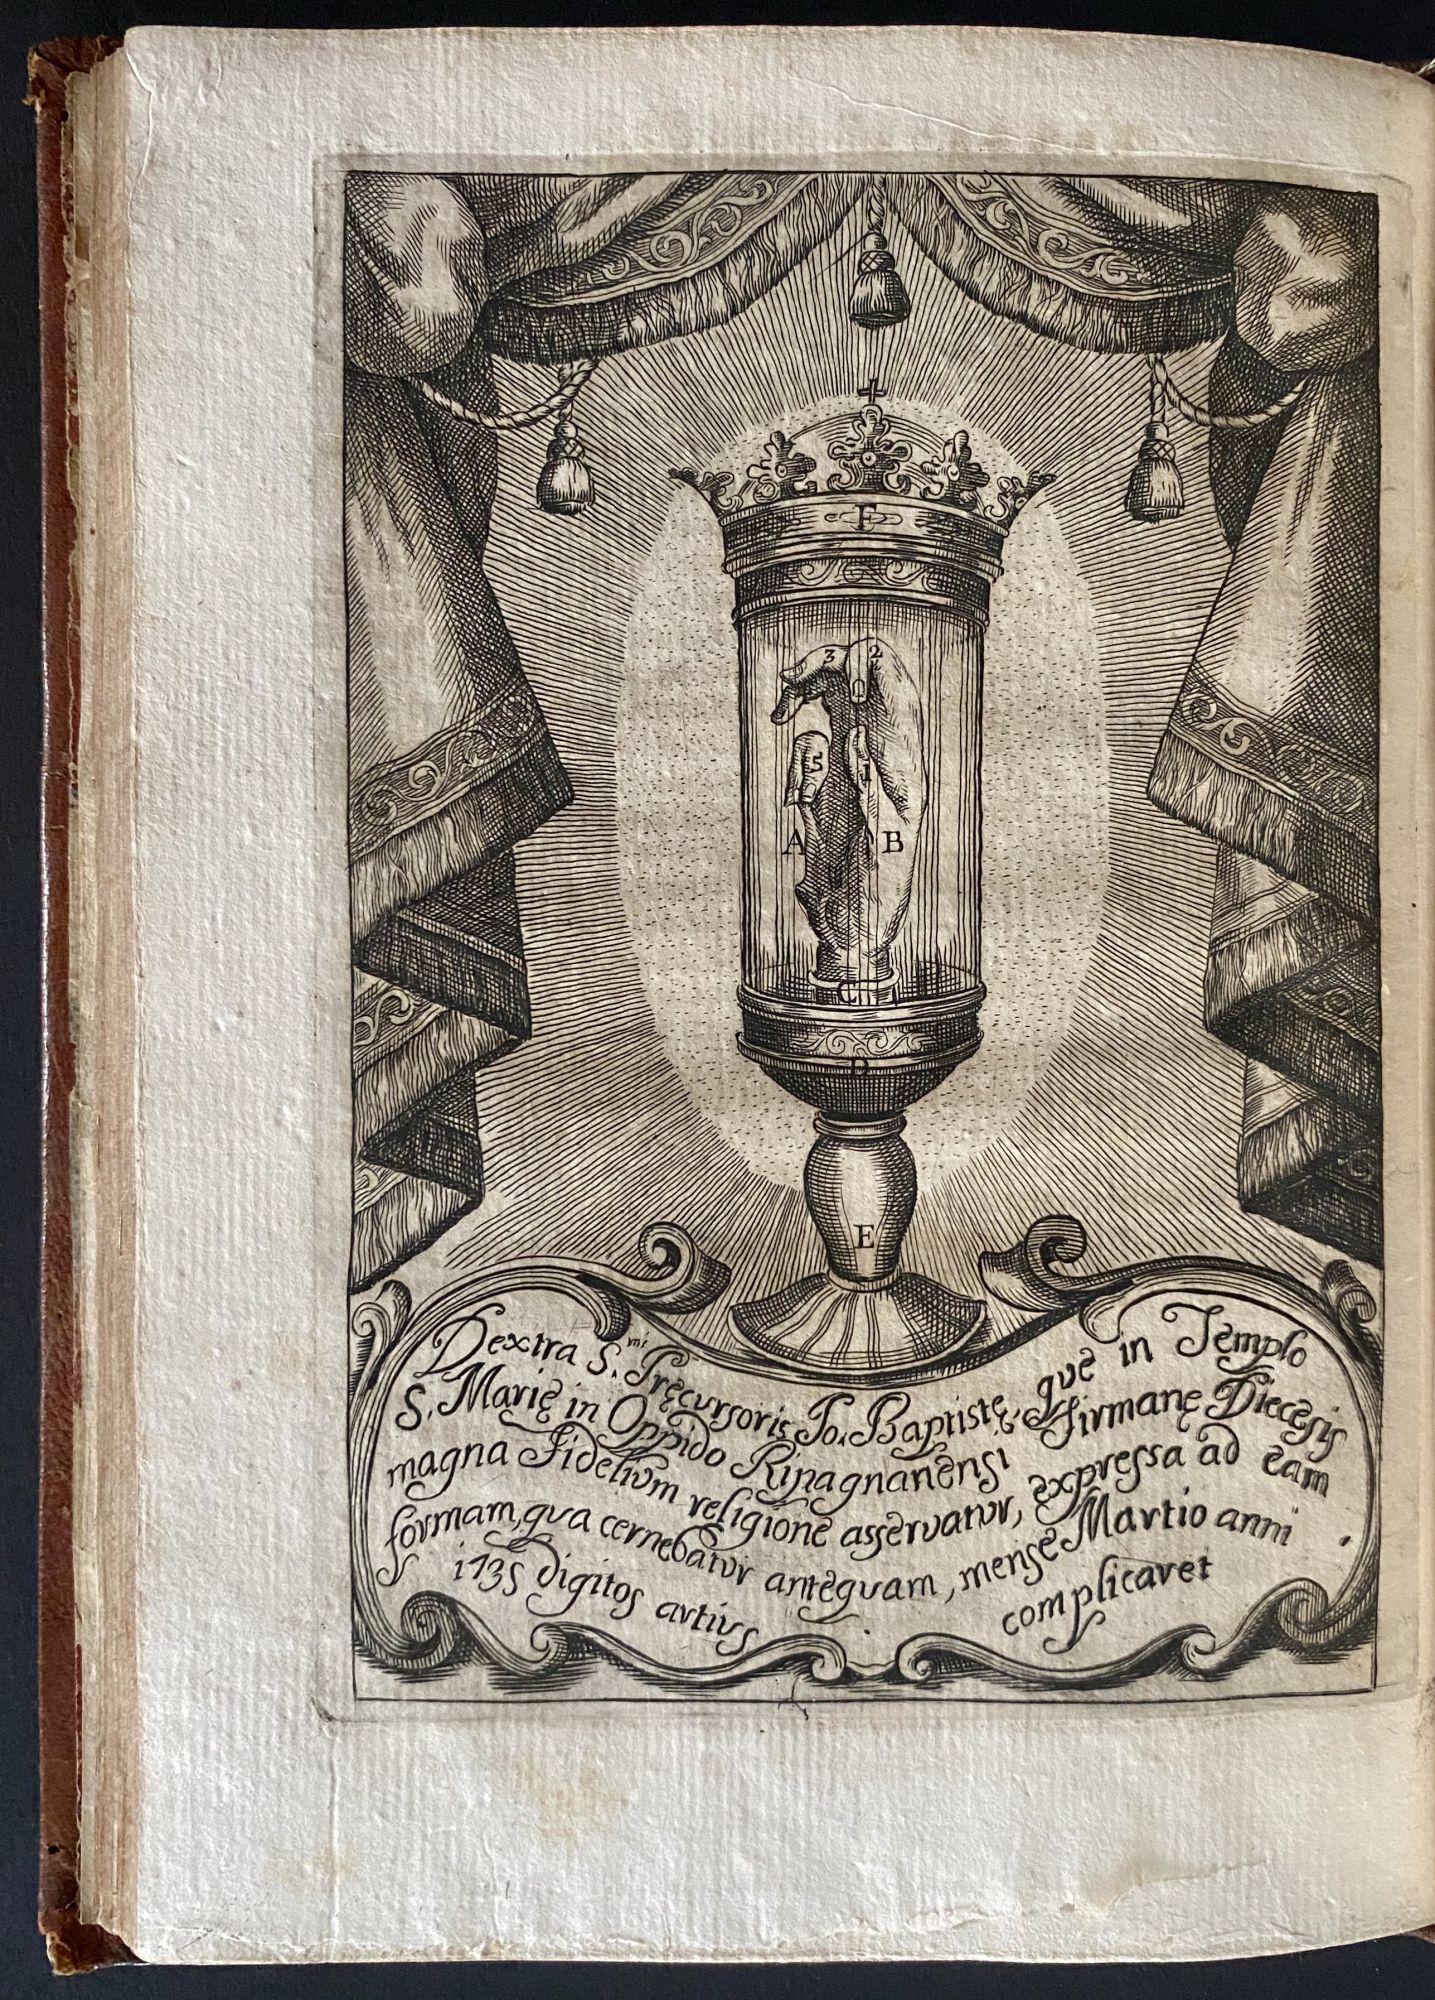 F
3 2
5 1
A B
C
D
E
Dextra S.mi Pręcursoris Jo. Baptistę, quę in Templo
S. Marię in Oppido Ripagnanensi Firmanę Diecesis
magna Fidelium religione asservatur, expressa ad eam
formam, qua cernebatur antequam, mense Martio anni
1735 digitos artius complicaret